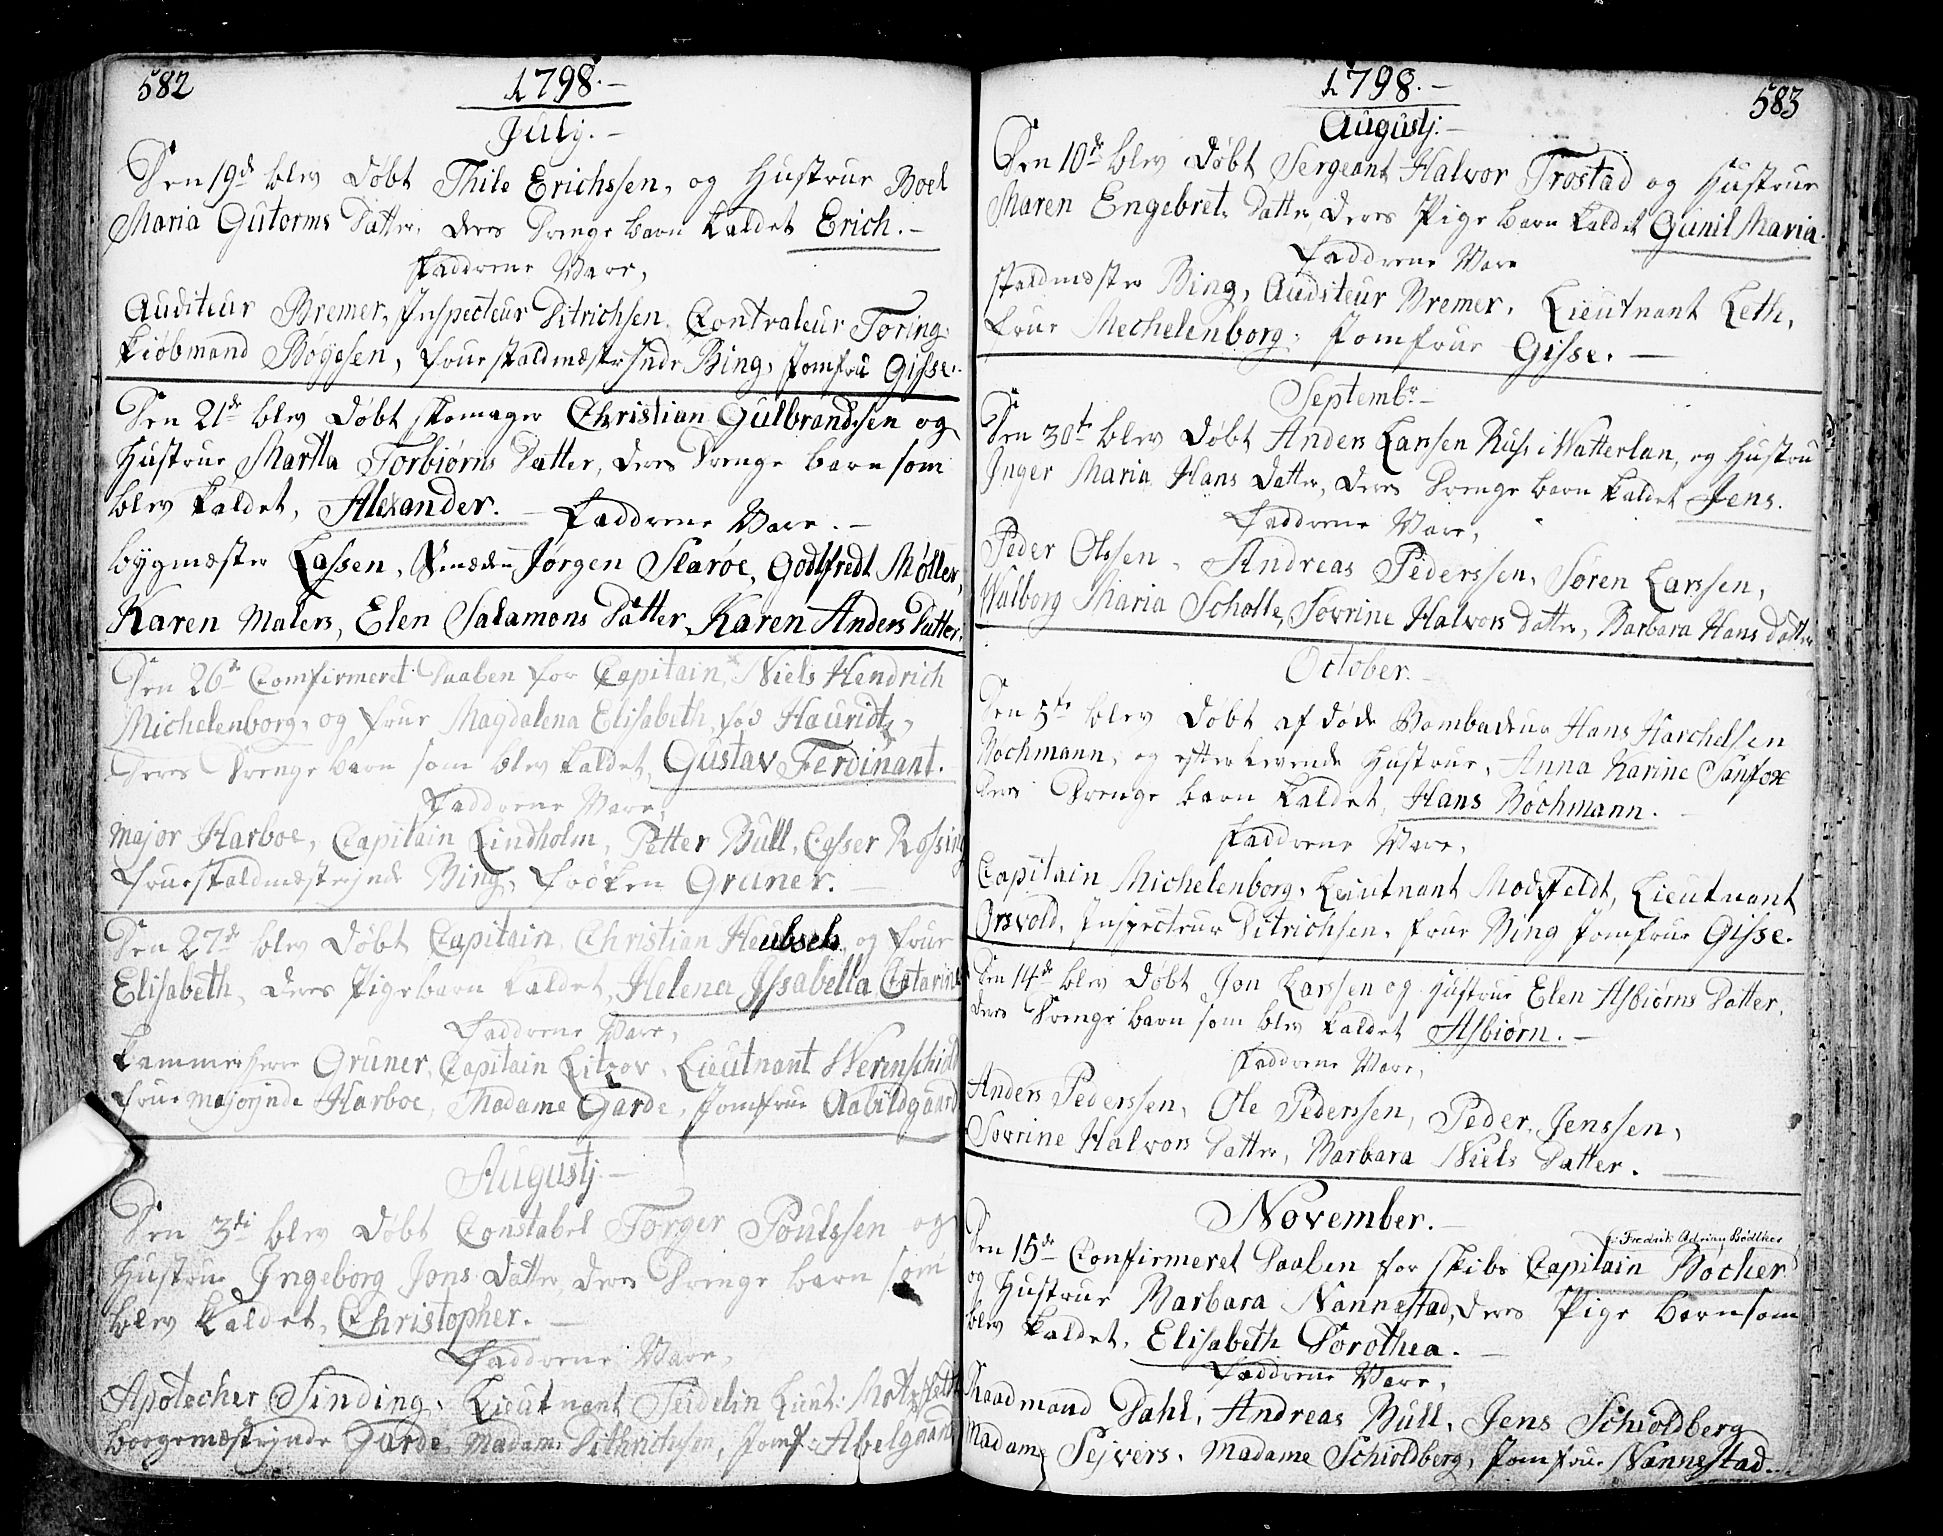 582
1798.
July.
Den 19de blev Døbt Thile Erichssen, og Hustrue Boel
Maria Gutorms Datter, deres Drenge barn kaldet Erich.
Faddrene Vare,
Auditeur Bremer, Inspecteur Ditrichsen, Contraleur Toring,
Kiøbmand Boyesen, frue staldmæsterinde Bing, Jomfru Gisse.
Den 21de blev Døbt skomager Christian Gulbrandssen og
Hustrue Martha Torbiørns Datter, deres Drenge barn som
blev kaldet, Alexander. Faddrene Vare.
bygmæster Lassen, Jørgen Slarøe, Godtfredt Møller,
Karen Malers, Elen Salamons Datter, Karen Anders Datter.
Den 26de Comfirmeret Daaben for Capitain Niels Hendrich
Michelenborg, og frue Magdalena Elisabeth, fød Hauridtz,
deres Drenge barn som blev kaldet, Gustav Ferdinant.
Faddrene Vare,
Major Harboe, Capitain Lindholm, Petter Bull, Casser Rossing
frue staldmæsterinde Bing, Frøken Gruner.
Den 27de blev Døbt Capitain Christian Heubsch og frue
Elisabeth, deres Pige barn kaldet, Helena Issabella Catarina
Faddrene Vare,
Kammerherre Gruner, Capitain Litzov, Lieutnant Wernschioldt
frue majorinde Harboe, Madame Garde, Jomfrue Aabildgaard
Augustj.
Den 3di blev Døbt Constabel Torger Poulssen og
Hustrue Ingeborg Jons Datter, deres Drenge barn som
blev kaldet, Christopher.
Faddrene Vare,
Apotecher Sinding, Lieutnant Seidelin Lieut: Motzfeldt
borgemæsterinde Garde, Madam Dithrichsen, Jomf: Abelgaard
583
1798.
Augustj.
Den 10de blev Døbt Sergeant Halvor Trostad og Hustrue
Maren Engebrets Datter, deres Pige barn kaldet Gunil Maria.
Faddrene Vare
staldmæster Bing, Auditeur Bremer, Lieutnant Leth,
frue Mechelenborg, Jomfrue Gisse.
Septembr
Den 30te blev Døbt Anders Larsen Russ i Watterlan, og Hustru
Inger Maria Hans Datter, deres Drenge barn kaldet Jens.
Faddrene Vare,
Peder Olssen, Andreas Pederssen, Søren Larssen,
Walborg Maria Scholle, Sovrine Halvors Datter, Barbara Hans Datter
October.
Den 5te blev Døbt af døde Bombadeur Hans Harchelsen
Bochmann, og efterlevende Hustrue, Anna Karine Sanfox
deres Drenge barn kaldet, Hans Bochmann.
Faddrene Vare,
Capitain Michelenborg, Lieutnant Modzfeldt, Lieutnant
Orsvold, Inspecteur Ditrichsen, frue Bing Jomfrue Gisse.
Den 14de blev Døbt Jon Larssen og Hustrue Elen Asbiørns Datter,
deres Drenge barn som blev kaldet Asbiørn.
Faddrene Vare,
Anders Pederssen, Ole Pederssen, Peder Jenssen,
Sovrine Halvors Datter, Barbara Niels Datter.
November.
Fredrik Adrian Bødtker
Den 15de Comfirmeret Daaben for skibs Capitain Bøcher
og Hustrue Barbara Nannestad, deres Pige barn som
blev kaldet, Elisabeth Dorothea.
Faddrene Vare,
Raadmand Dahl, Andreas Bull, Jens Schioldberg
Madam Sejvers, Madame Schioldberg, Jomfrue Nannestad.